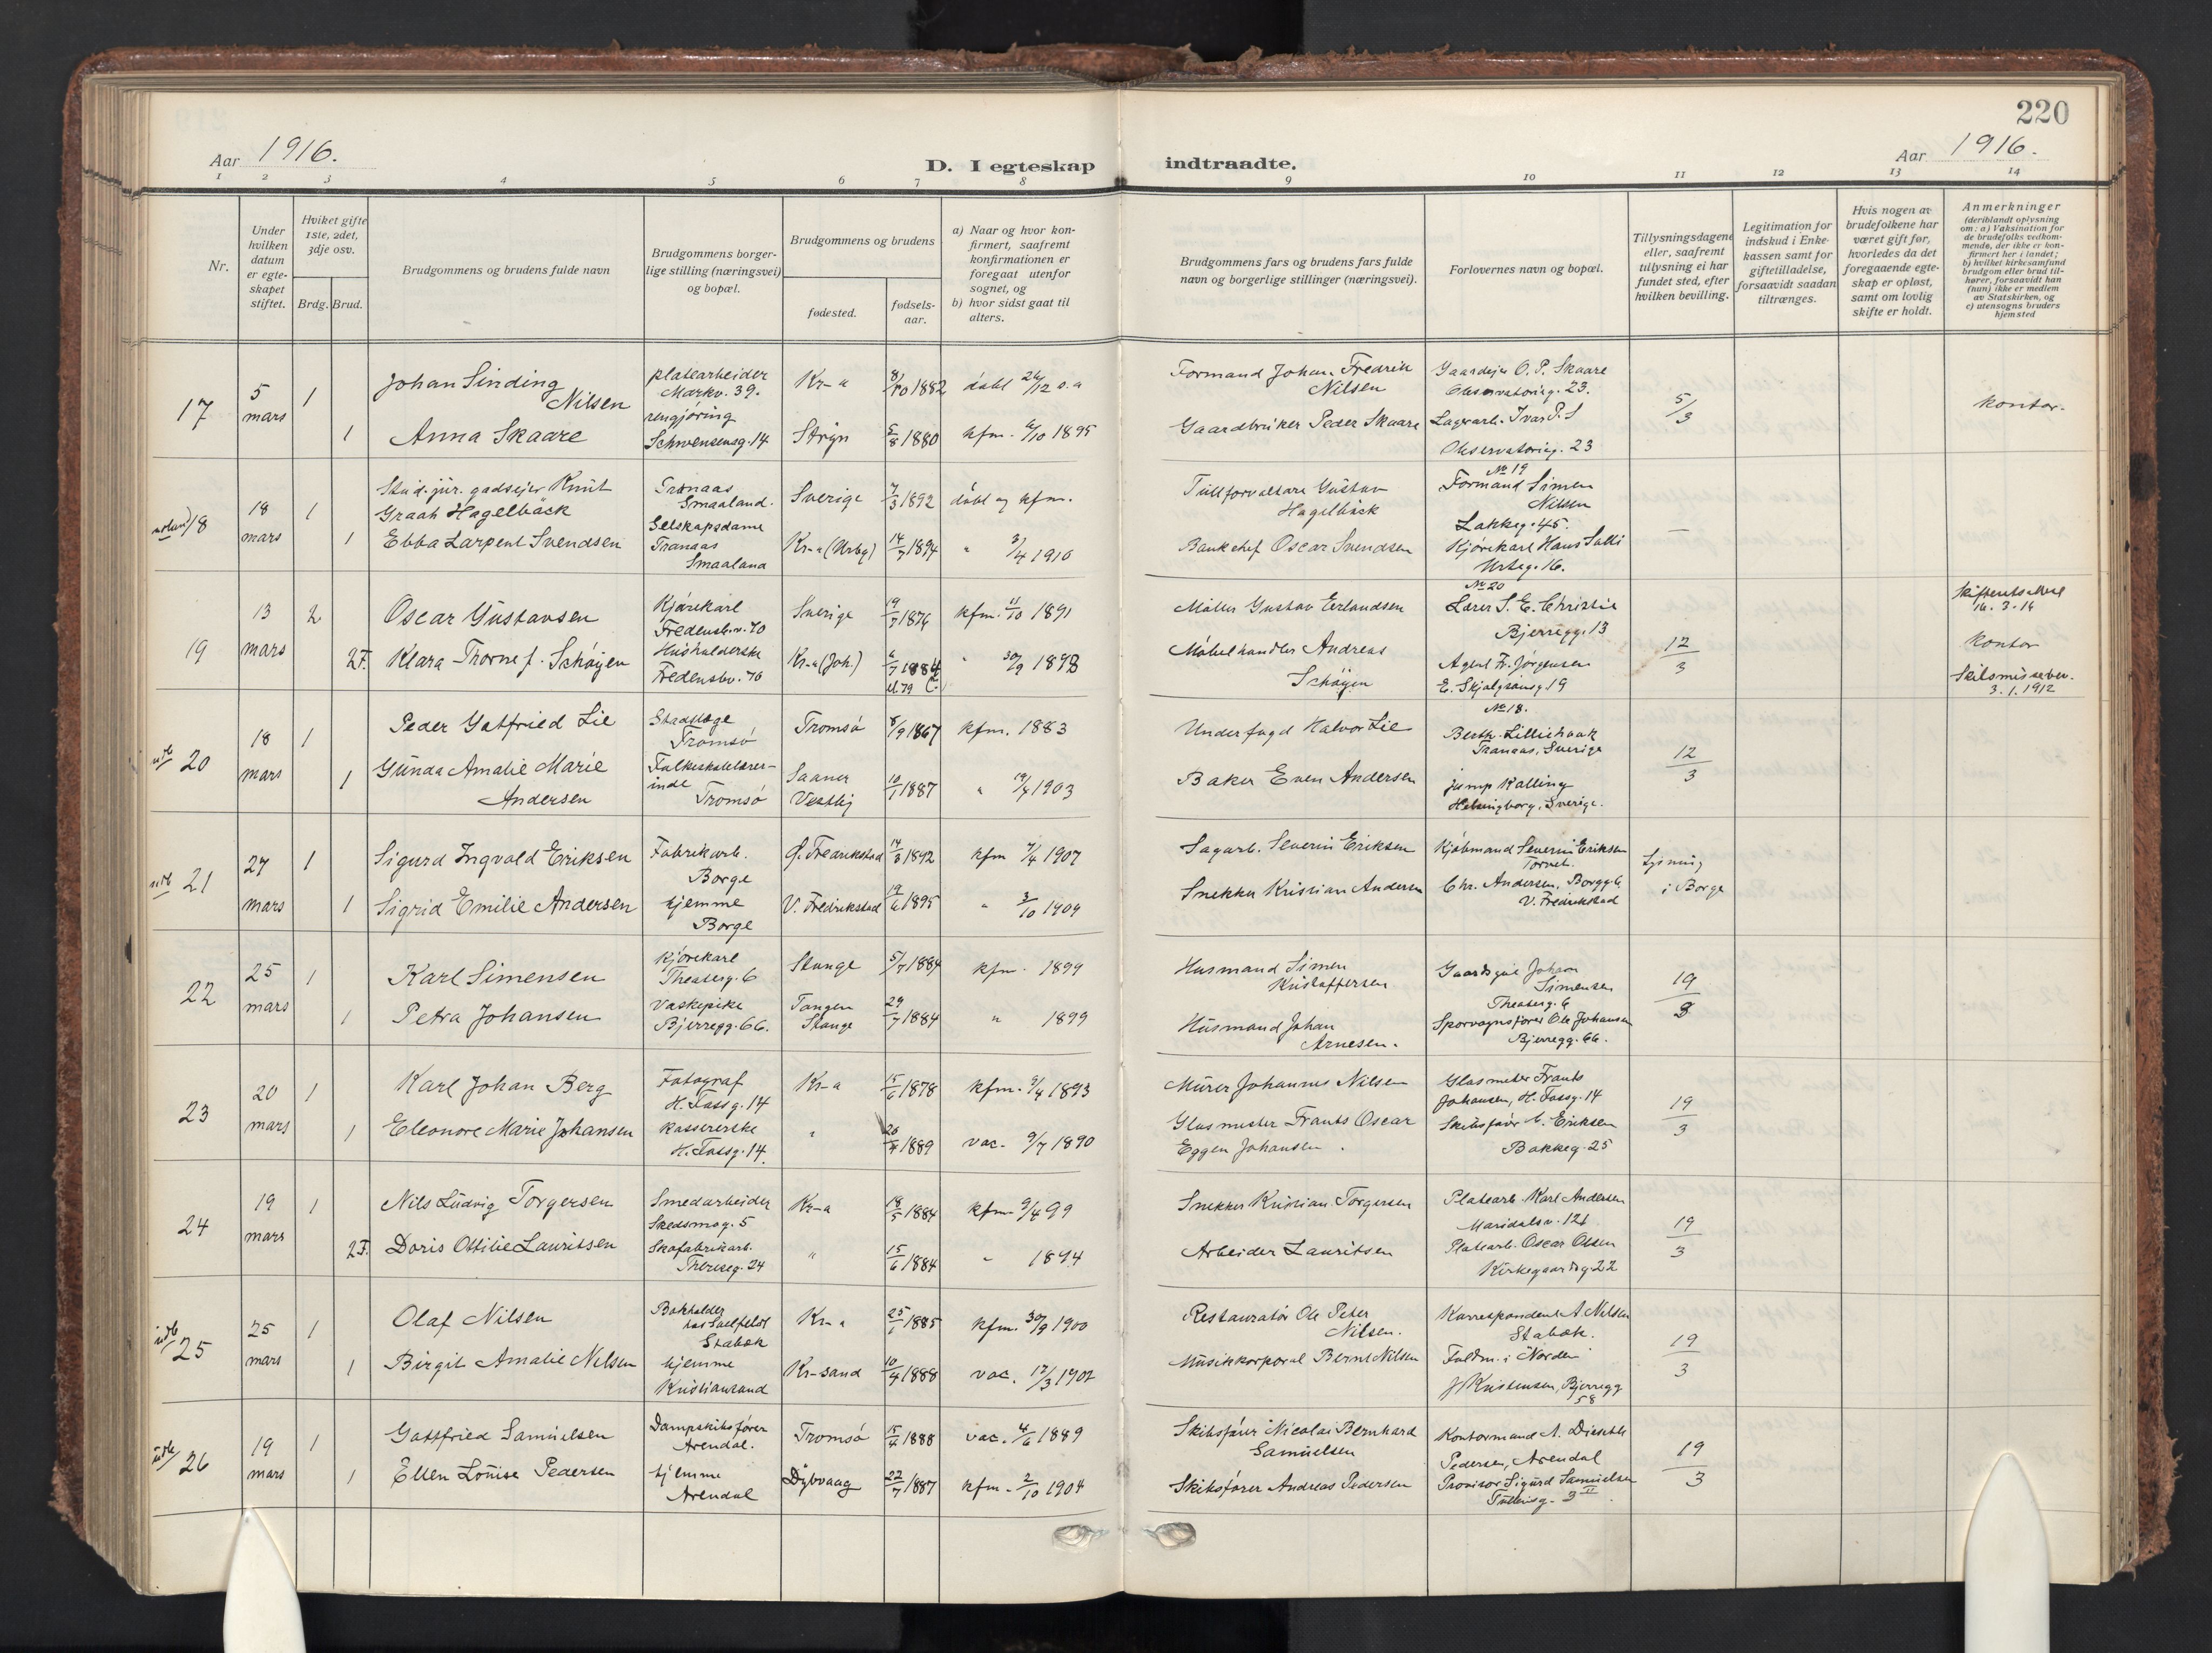 220
Aar 1916.
D. I egteskap indtraadte.
Aar 1916.
1 2 3 4 5 6 7 8 9 10 11 12 13 14
Nr.
Under
hvilken
datum
er egte-
skapet
stiftet.
Hvilket gifte
1ste, 2det,
3dje osv.
Brdg. Brud.
Brudgommens og brudens fulde navn
Brudgommens borger-
lige stilling (næringsvei)
og bopæl.
Brudgommens og brudens
fødested.
fødsels-
aar.
a) Naar og hvor kon-
firmert, saafremt
konfirmationen er
foregaat utenfor
sognet, og
b) hvor sidst gaat til
alters.
Brudgommens fars og brudens fars fulde
navn og borgerlige stillinger (næringsvei).
Forlovernes navn og bopæl.
Tillysningsdagene
eller, saafremt
tillysning ei har
fundet sted, efter
hvilken bevilling.
Legitimation for
indskud i Enke-
kassen samt for
giftetilladelse,
forsaavidt saadan
tiltrænges.
Hvis nogen av
brudefolkene har
været gift før,
hvorledes da det
foregaaende egte-
skap er opløst,
samt om lovlig
skifte er holdt.
Anmerkninger
(deriblandt oplysning
om: a) Vaksination for
de brudefolks vedkom-
mende, der ikke er kon-
firmert her i landet;
b) hvilket kirkesamfund
brudgom eller brud til-
hører, forsaavidt han
(hun) ikke er medlem
av Statskirken, og
c) utensogns bruders
hjemsted
17
5
mars
1
Johan Sinding
Nilsen
platearbeider
Markv. 39.
Kr-a
8/10 1882
døbt 26/12 s.a
Formand Johan Fredrik
Nilsen
Gaardejer O. P. Skaare
Observatorieg. 23.
5/3
kontor.
1
Anna Skaare
rengjøring
Schwensensg. 14
Stryn
5/8 1880
kfm. 6/10 1895
Gaardbruker Peder Skaare
Lagerarb. Ivar P. S
Observatorieg. 23
18
18
mars
1
Stud. jur. godsejer Knut
Graah Hagelbäck
Tranaas
Smaaland.
Sverige
7/3 1892
døbt og kfm.
Tullforvaltare Gustav
Hagelbäck
No 19
Formand Simen
Nilsen
Lakkeg. 45.
1
Ebba Larpent Svendsen
Selskapsdame
Tranaas
Smaaland
Kr-a (Urbg)
14/7 1894
" 3/4 1910
Bankchef Oscar Svendsen
Kjørekarl Hans
Urteg. 16.
—
19
13
mars
2
Oscar Gustavsen
Kjørekarl
Fredensbv. 70
Sverige
19/7 1876
kfm. 11/10 1891
Møller Gustav Erlandsen
No 20
Lærer S. E. Christie
Bjerregg. 13
12/3
16. 3. 16
kontor
2 F.
Klara Thorne f. Schøyen
Husholderske
Fredensbv. 70
Kr-a (Joh.)
6/7 1884
" 30/9 1898
Møbelhandler Andreas
Schøyen
Agent Fr. Jørgensen
E. Skjalgsønsg. 19
Skilsmissebev.
3. 1. 1912
20
18
mars
1
Peder Gotfried Lie
Stadslæge
Tromsø
Tromsø
/9 1867
kfm. 1883
Underfogd Halvor Lie
No 18.
Berth. Lilliehöök
Tranaas, Sverige
12/3
1
Gunda Amalie Marie
Andersen
Folkeskolelærer-
inde
Tromsø
Saaner
Vestby
10/1 1887
" 19/4 1903
Baker Even Andersen
Kalling
Helsingborg, Sverige.
21
27
mars
1
Sigurd Ingvald Eriksen
Fabrikarb.
Borge
Ø. Fredrikstad
14/3 1892
kfm 7/4 1907
Sagarb. Severin Eriksen
Kjøbmand Severin Eriksen
Torvet.
Lysning
i Borge
1
Sigrid Emilie Andersen
hjemme
Borge
V. Fredrikstad
19/6 1895
" 3/10 1909
Snekker Kristian Andersen
Chr. Andersen, Borgg. 6
V. Fredrikstad
22
25
mars
1
Karl Simensen
Kjørekarl
Theaterg. 6
Stange
5/7 1884
kfm. 1899
Husmand Simen
Kristoffersen
Gaardsgut Johan
Simensen
Theaterg. 6
19/3
1
Petra Johansen
Vaskepike
Bjerregg. 66.
Tangen
Stange
29/7 1884
" 1899
Husmand Johan
Arnesen.
Sporvognsfører Ole Johansen
Bjerregg. 66.
23
20
mars
1
Karl Johan Berg
Fotograf
H. Tossg. 14
Kr-a
15/6 1878
kfm. 9/4 1893
Murer Johannes Nilsen
Glasmester Frants
Johansen, H. Tossg. 14
19/3
1
Eleonore Marie Johansen
Kassererske
H. Tossg. 14.
"
1889
vac. 9/7 1890
Glasmester Frants Oscar
Eggen Johansen.
Skibsfører C. Eriksen
Bakkeg. 25
24
19
mars
1
Nils Ludvig Torgersen
Smedarbeider
Skedsmog. 5
Kr-a
18/5 1884
kfm 9/4 99
Snekker Kristian Torgersen
Platearb. Karl Andersen
Maridalsv. 121
19/3
2 F.
Doris Ottilie Lauritsen
Skofabrikarb.
Thereseg. 24
"
15/6 1884
" 1894
Arbeider Lauritsen
Platearb. Oscar Olsen
Kirkegaardsg. 22
25
25
mars
1
Olaf Nilsen
Bokholder
Stabæk
Kr-a
25/1 1885
kfm. 30/9 1900
Restauratør Ole Peter
Nilsen.
Korrespondent A Nilsen
Stabæk.
19/3
1
Birgit Amalie Nilsen
hjemme
Kristiansand
Kr-sand
10/4 1888
vac. 17/3 1902
Musikkorporal Bernt Nilsen
Fuldm. i "Norden"
J Kristensen, Bjerregg
58
26
19
mars
1
Gottfried Samuelsen
Dampskibsfører
Arendal.
Tromsø
15/4 1888
vac. 4/6 1889
Skibsfører Nicolai Bernhard
Samuelsen
Kontormand A.
Pedersen, Arendal
19/3
1
Ellen Louise Pedersen
hjemme
Arendal
Dybvaag
22/7 1887
kfm. 2/10 1904
Skibsfører Andreas Pedersen
Provisor Sigurd Samuelsen
Tullinsg. 3 II